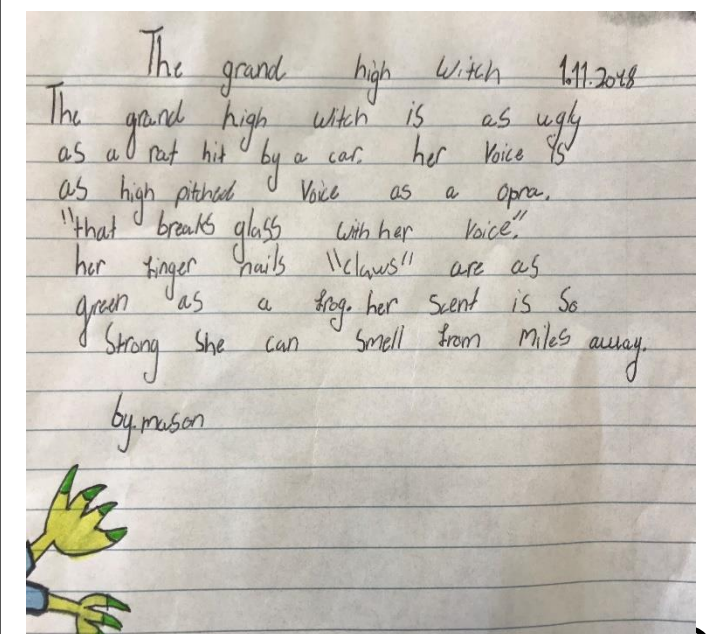 The grand high Witch 1.11.2018
The grand high witch is as ugly
as a rat hit by a car. her Voice is
as high pitched Voice as a opra.
"that breaks glass with her Voice."
her finger nails "claws" are as
green as a frog. her Scent is So
Strong She can Smell from Miles away.
by.mason